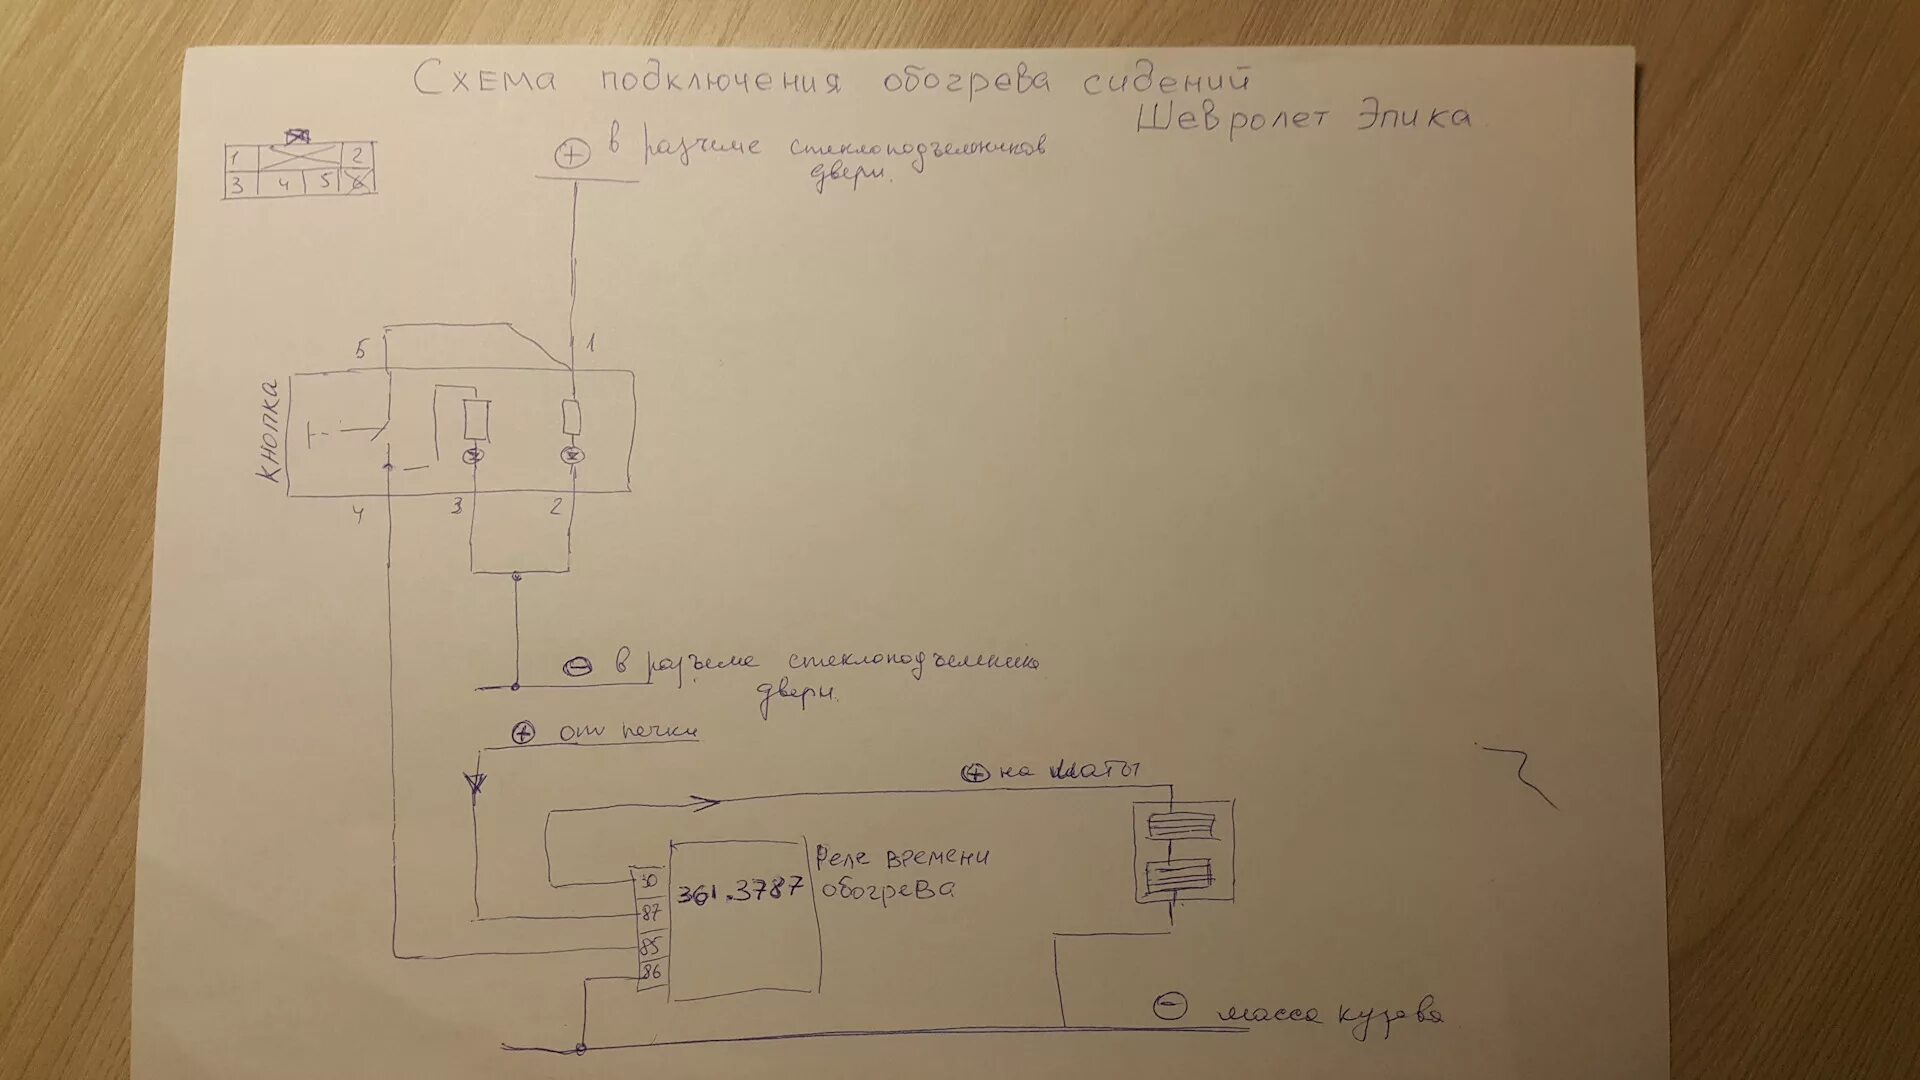 Схема подключения обогрева сидений
Шевролет Эпика
1 2
3 4 5 6
+ в разъеме стеклоподъемников
двери.
5 1
Кнопка
4 3 2
- в разъеме стеклоподъемника
двери.
+ от печки
+ на маты
Реле времени
обогрева
361.3787
30
87
85
86
- масса кузова